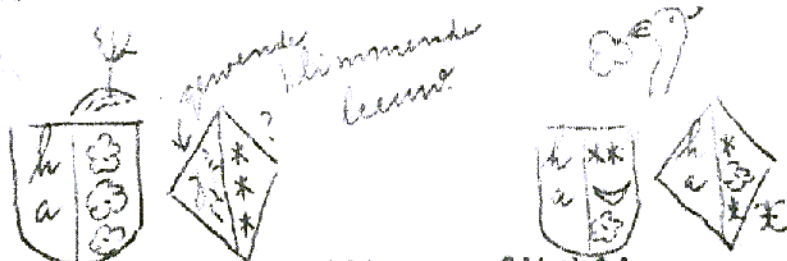 gewende klimmende
leeuw?
?
h
a
h
a
h
a